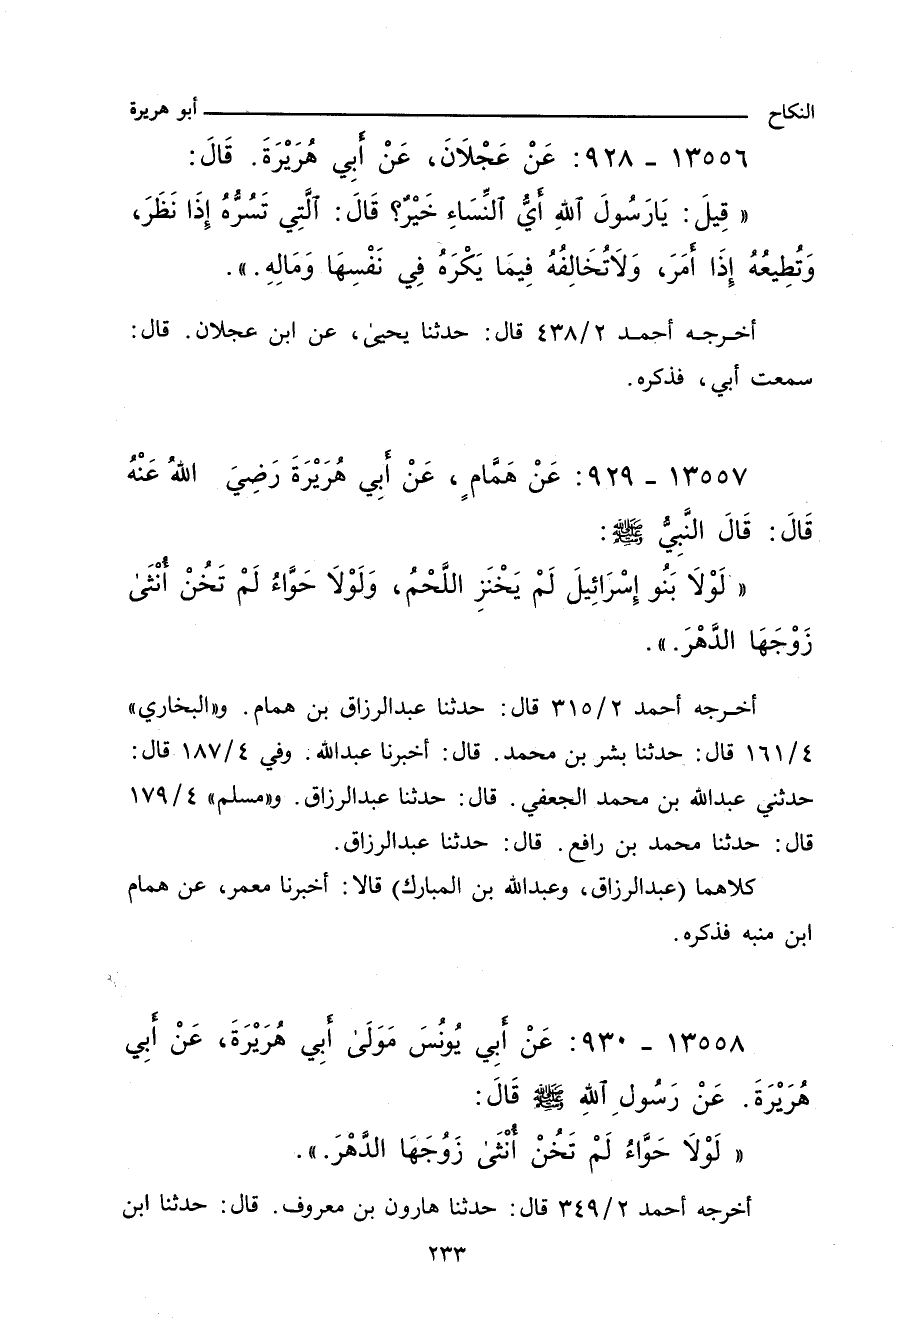 النكاح ــــــــــ أبو هريرة
١٣٥٥٦ ـ ٩٢٨: عَنْ عَجْلَانَ، عَنْ أَبِي هُرَيْرَةَ. قَالَ:
« قِيلَ: يَارَسُولَ ٱللهِ أَيُّ ٱلنِّسَاءِ خَيْرٌ؟ قَالَ: ٱلَّتِي تَسُرُّهُ إِذَا نَظَرَ،
وَتُطِيعُهُ إِذَا أَمَرَ، وَلَاتُخَالِفُهُ فِيمَا يَكْرَهُ فِي نَفْسِهَا وَمَالِهِ.».
أخـرجـه أحمـد ٤٣٨/٢ قال: حدثنا يحيىٰ، عن ابن عجلان. قال:
سمعت أبي، فذكره.
١٣٥٥٧ ـ ٩٢٩: عَنْ هَمَّامٍ، عَنْ أَبِي هُرَيْرَةَ رَضِيَ اللهُ عَنْهُ
قَالَ: قَالَ النَّبِيُّ ﷺ:
« لَوْلَا بَنُو إِسْرَائِيلَ لَمْ يَخْنَزِ اللَّحْمُ، وَلَوْلَا حَوَّاءُ لَمْ تَخُنْ أُنْثَىٰ
زَوْجَهَا الدَّهْرَ.».
أخـرجه أحمد ٣١٥/٢ قال: حدثنا عبدالرزاق بن همام. و«البخاري»
١٦١/٤ قال: حدثنا بشر بن محمد. قال: أخبرنا عبدالله. وفي ١٨٧/٤ قال:
حدثني عبدالله بن محمد الجعفي. قال: حدثنا عبدالرزاق. و«مسلم» ١٧٩/٤
قال: حدثنا محمد بن رافع. قال: حدثنا عبدالرزاق.
كلاهما (عبدالرزاق، وعبدالله بن المبارك) قالا: أخبرنا معمر، عن همام
ابن منبه فذكره.
١٣٥٥٨ ـ ٩٣٠: عَنْ أَبِي يُونُسَ مَوَلَىٰ أَبِي هُرَيْرَةَ، عَنْ أَبِي
هُرَيْرَةَ. عَنْ رَسُولِ ٱللهِ ﷺ قَالَ:
« لَوْلَا حَوَّاءُ لَمْ تَخُنْ أُنْثَىٰ زَوُجَهَا الدَّهْرَ.».
أخرجه أحمد ٣٤٩/٢ قال: حدثنا هارون بن معروف. قال: حدثنا ابن
٢٣٣